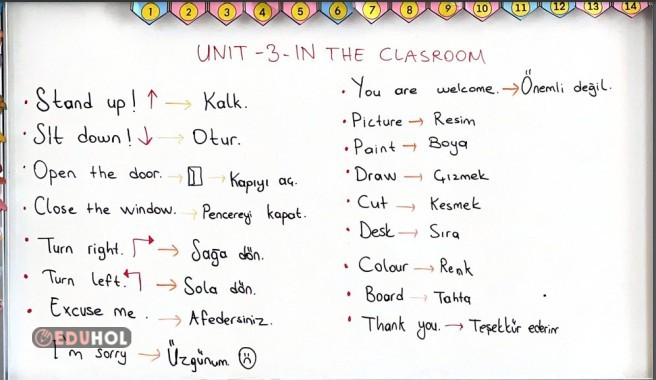 1 2 3 4 5 6 7 8 9 10 11 12 13 14
UNIT -3- IN THE CLASROOM
• Stand up! ↑ → Kalk.
• Sit down! ↓ → Otur.
• Open the door. → → Kapıyı aç.
• Close the window. → Pencereyi kapat.
• Turn right. → Sağa dön.
• Turn left. → Sola dön.
• Excuse me. → Afedersiniz.
EDUHOL
I'm sorry → Üzgünüm ☹
• You are welcome. → Önemli değil.
• Picture → Resim
• Paint → Boya
• Draw → Çizmek
• Cut → Kesmek
• Desk → Sıra
• Colour → Renk
• Board → Tahta
• Thank you. → Teşekkür ederim